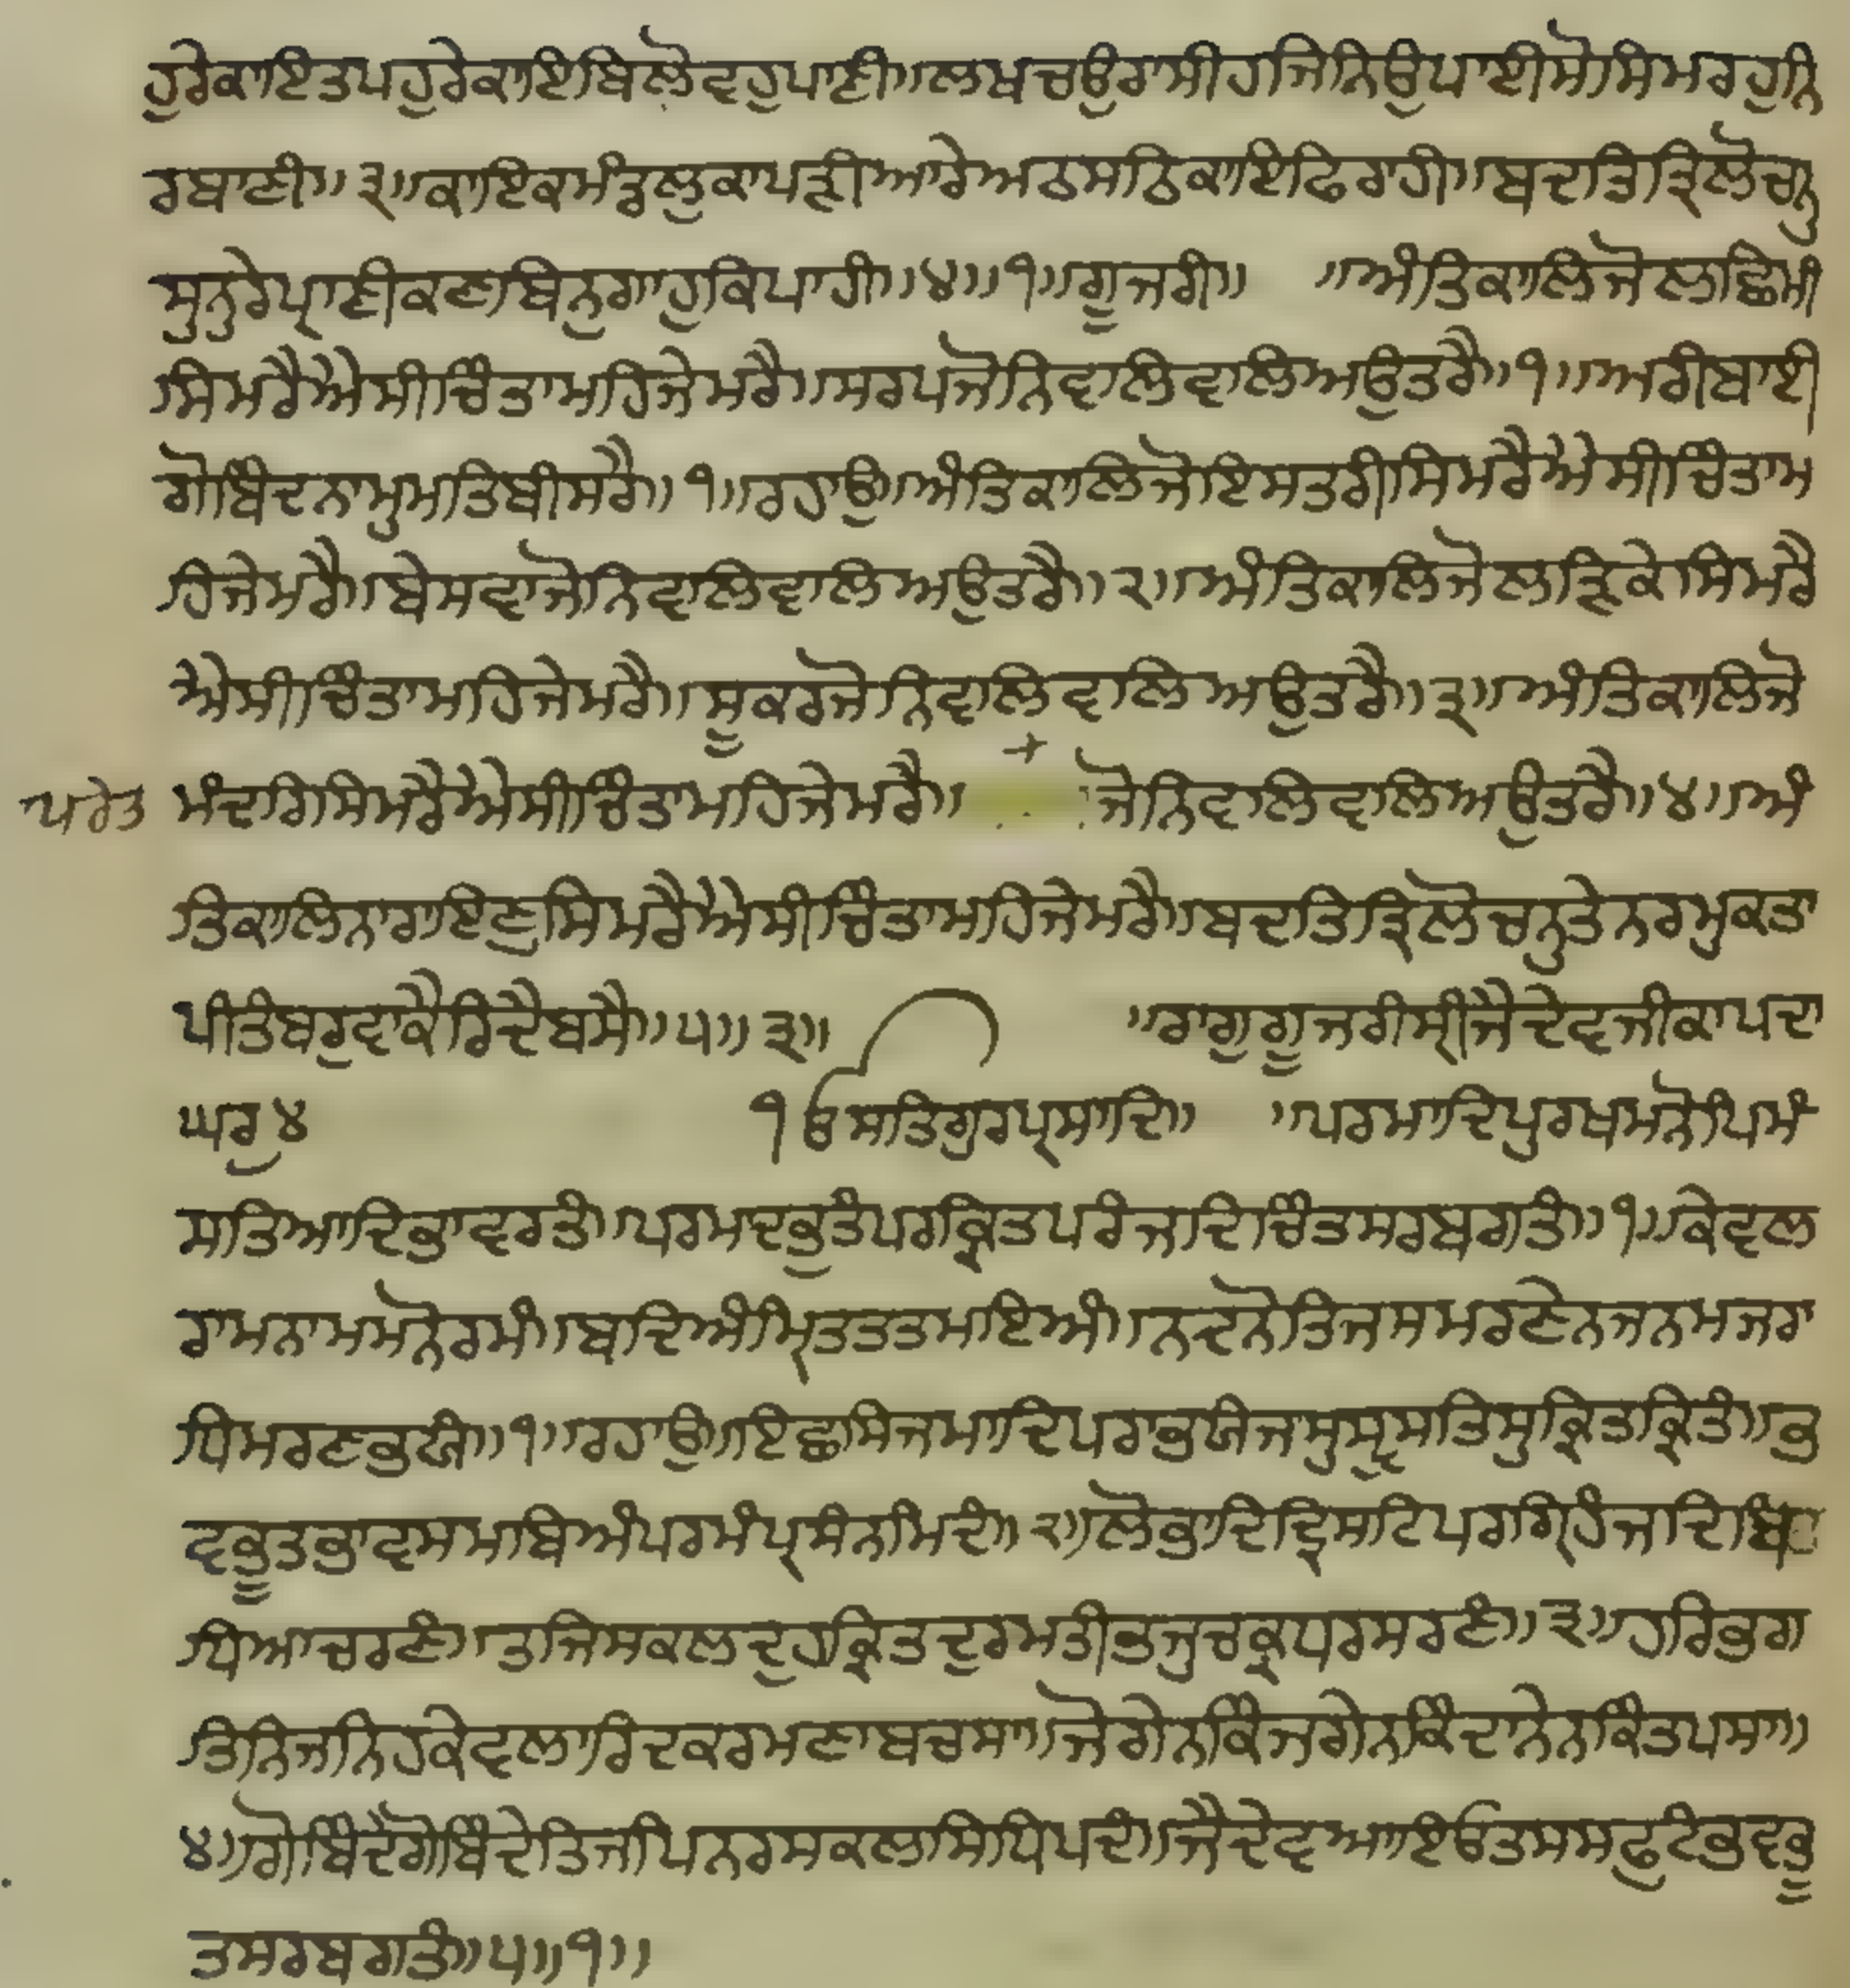 ਹੁਰੇਕਾਇਤਪਹੁਰੇਕਾਇਬਿਲੋਵਹੁਪਾਣੀ॥ਲਖਚਉਰਾਸੀਹਜਿਨਿਉਪਾਈਸੋਸਿਮਰਹੁਨਿ
ਰਬਾਣੀ॥੩॥ਕਾਇਕਮੰਡਲੁਕਾਪੜੀਆਰੇਅਠਸਠਿਕਾਇਫਿਰਾਹੀ॥ਬਦਤਿਤ੍ਰਿਲੋਚਨੁ
ਸੁਨੁਰੇਪ੍ਰਾਣੀਕਣਬਿਨੁਗਾਹੁਕਿਪਾਹੀ॥੪॥੧॥ਗੂਜਰੀ॥ ॥ਅੰਤਿਕਾਲਿਜੋਲਛਿਮੀ
ਸਿਮਰੈਐਸੀਚਿੰਤਾਮਹਿਜੇਮਰੈ॥ਸਰਪਜੋਨਿਵਲਿਵਲਿਅਉਤਰੈ॥੧॥ਅਰੀਬਾਈ
ਗੋਬਿੰਦਨਾਮੁਮਤਿਬੀਸਰੈ॥੧॥ਰਹਾਉ॥ਅੰਤਿਕਾਲਿਜੋਇਸਤਰੀਸਿਮਰੈਐਸੀਚਿੰਤਾਮ
ਹਿਜੇਮਰੈ॥ਬੇਸਵਾਜੋਨਿਵਲਿਵਲਿਅਉਤਰੈ॥੨॥ਅੰਤਿਕਾਲਿਜੋਲੜਿਕੇਸਿਮਰੈ
ਐਸੀਚਿੰਤਾਮਹਿਜੇਮਰੈ॥ਸੂਕਰਜੋਨਿਵਲਿਵਲਿਅਉਤਰੈ॥੩॥ਅੰਤਿਕਾਲਿਜੋ
ਪਰੇਤ ਮੰਦਰਸਿਮਰੈਐਸੀਚਿੰਤਾਮਹਿਜੇਮਰੈ॥ + ਜੋਨਿਵਲਿਵਲਿਅਉਤਰੈ॥੪॥ਅੰ
ਤਿਕਾਲਿਨਾਰਾਇਣੁਸਿਮਰੈਐਸੀਚਿੰਤਾਮਹਿਜੇਮਰੈ॥ਬਦਤਿਤ੍ਰਿਲੋਚਨੁਤੇਨਰਮੁਕਤਾ
ਪੀਤੰਬਰੁਵਾਕੈਰਿਦੈਬਸੈ॥੫॥੩॥ ॥ਰਾਗੁਗੂਜਰੀਸ੍ਰੀਜੈਦੇਵਜੀਕਾਪਦਾ
ਘਰੁ੪ ੴਸਤਿਗੁਰਪ੍ਰਸਾਦਿ॥ ॥ਪਰਮਾਦਿਪੁਰਖਮਨੋਪਿਮੰ
ਸਤਿਆਦਿਭਾਵਰਤੰ॥ਪਰਮਦਭੁਤੰਪਰਕ੍ਰਿਤਪਰੰਜਦਿਚਿੰਤਸਰਬਗਤੰ॥੧॥ਕੇਵਲ
ਰਾਮਨਾਮਮਨੋਰਮੰ॥ਬਦਿਅੰਮ੍ਰਿਤਤਤਮਇਅੰ॥ਨਦਨੋਤਿਜਸਮਰਣੇਨਜਨਮਜਰਾ
ਧਿਮਰਣਭਇਅੰ॥੧॥ਰਹਾਉ॥ਇਛਸਿਜਮਾਦਿਪਰਾਭਯੰਜਸੁਸ੍ਵਸਤਿਸੁਕ੍ਰਿਤਕ੍ਰਿਤੰ॥ਭ
ਵਭੂਤਭਾਵਸਮਬਿਅੰਪਰਮੰਪ੍ਰਸੰਨਮਿਦੰ॥੨॥ਲੋਭਾਦਿਦ੍ਰਿਸਟਿਪਰਗ੍ਰਿਹੰਜਦਿਬਿ
ਧਿਆਚਰਣੰ॥ਤਜਿਸਕਲਦੁਹਕ੍ਰਿਤਦੁਰਮਤੀਭਜੁਚਕ੍ਰਧਰਸਰਣੰ॥੩॥ਹਰਿਭਗ
ਤਿਨਿਜਨਿਹਕੇਵਲਾਰਿਦਕਰਮਣਾਬਚਸਾ॥ਜੋਗੇਨਕਿੰਜਗੇਨਕਿੰਦਾਨੇਨਕਿੰਤਪਸਾ॥
੪॥ਗੋਬਿੰਦੇਗੋਬਿੰਦੇਤਿਜਪਿਨਰਸਕਲਸਿਧਿਪਦੰ॥ਜੈਦੇਵਆਇਉਤਸਸਫੁਟੰਭਵਭੂ
ਤਸਰਬਗਤੰ॥੫॥੧॥